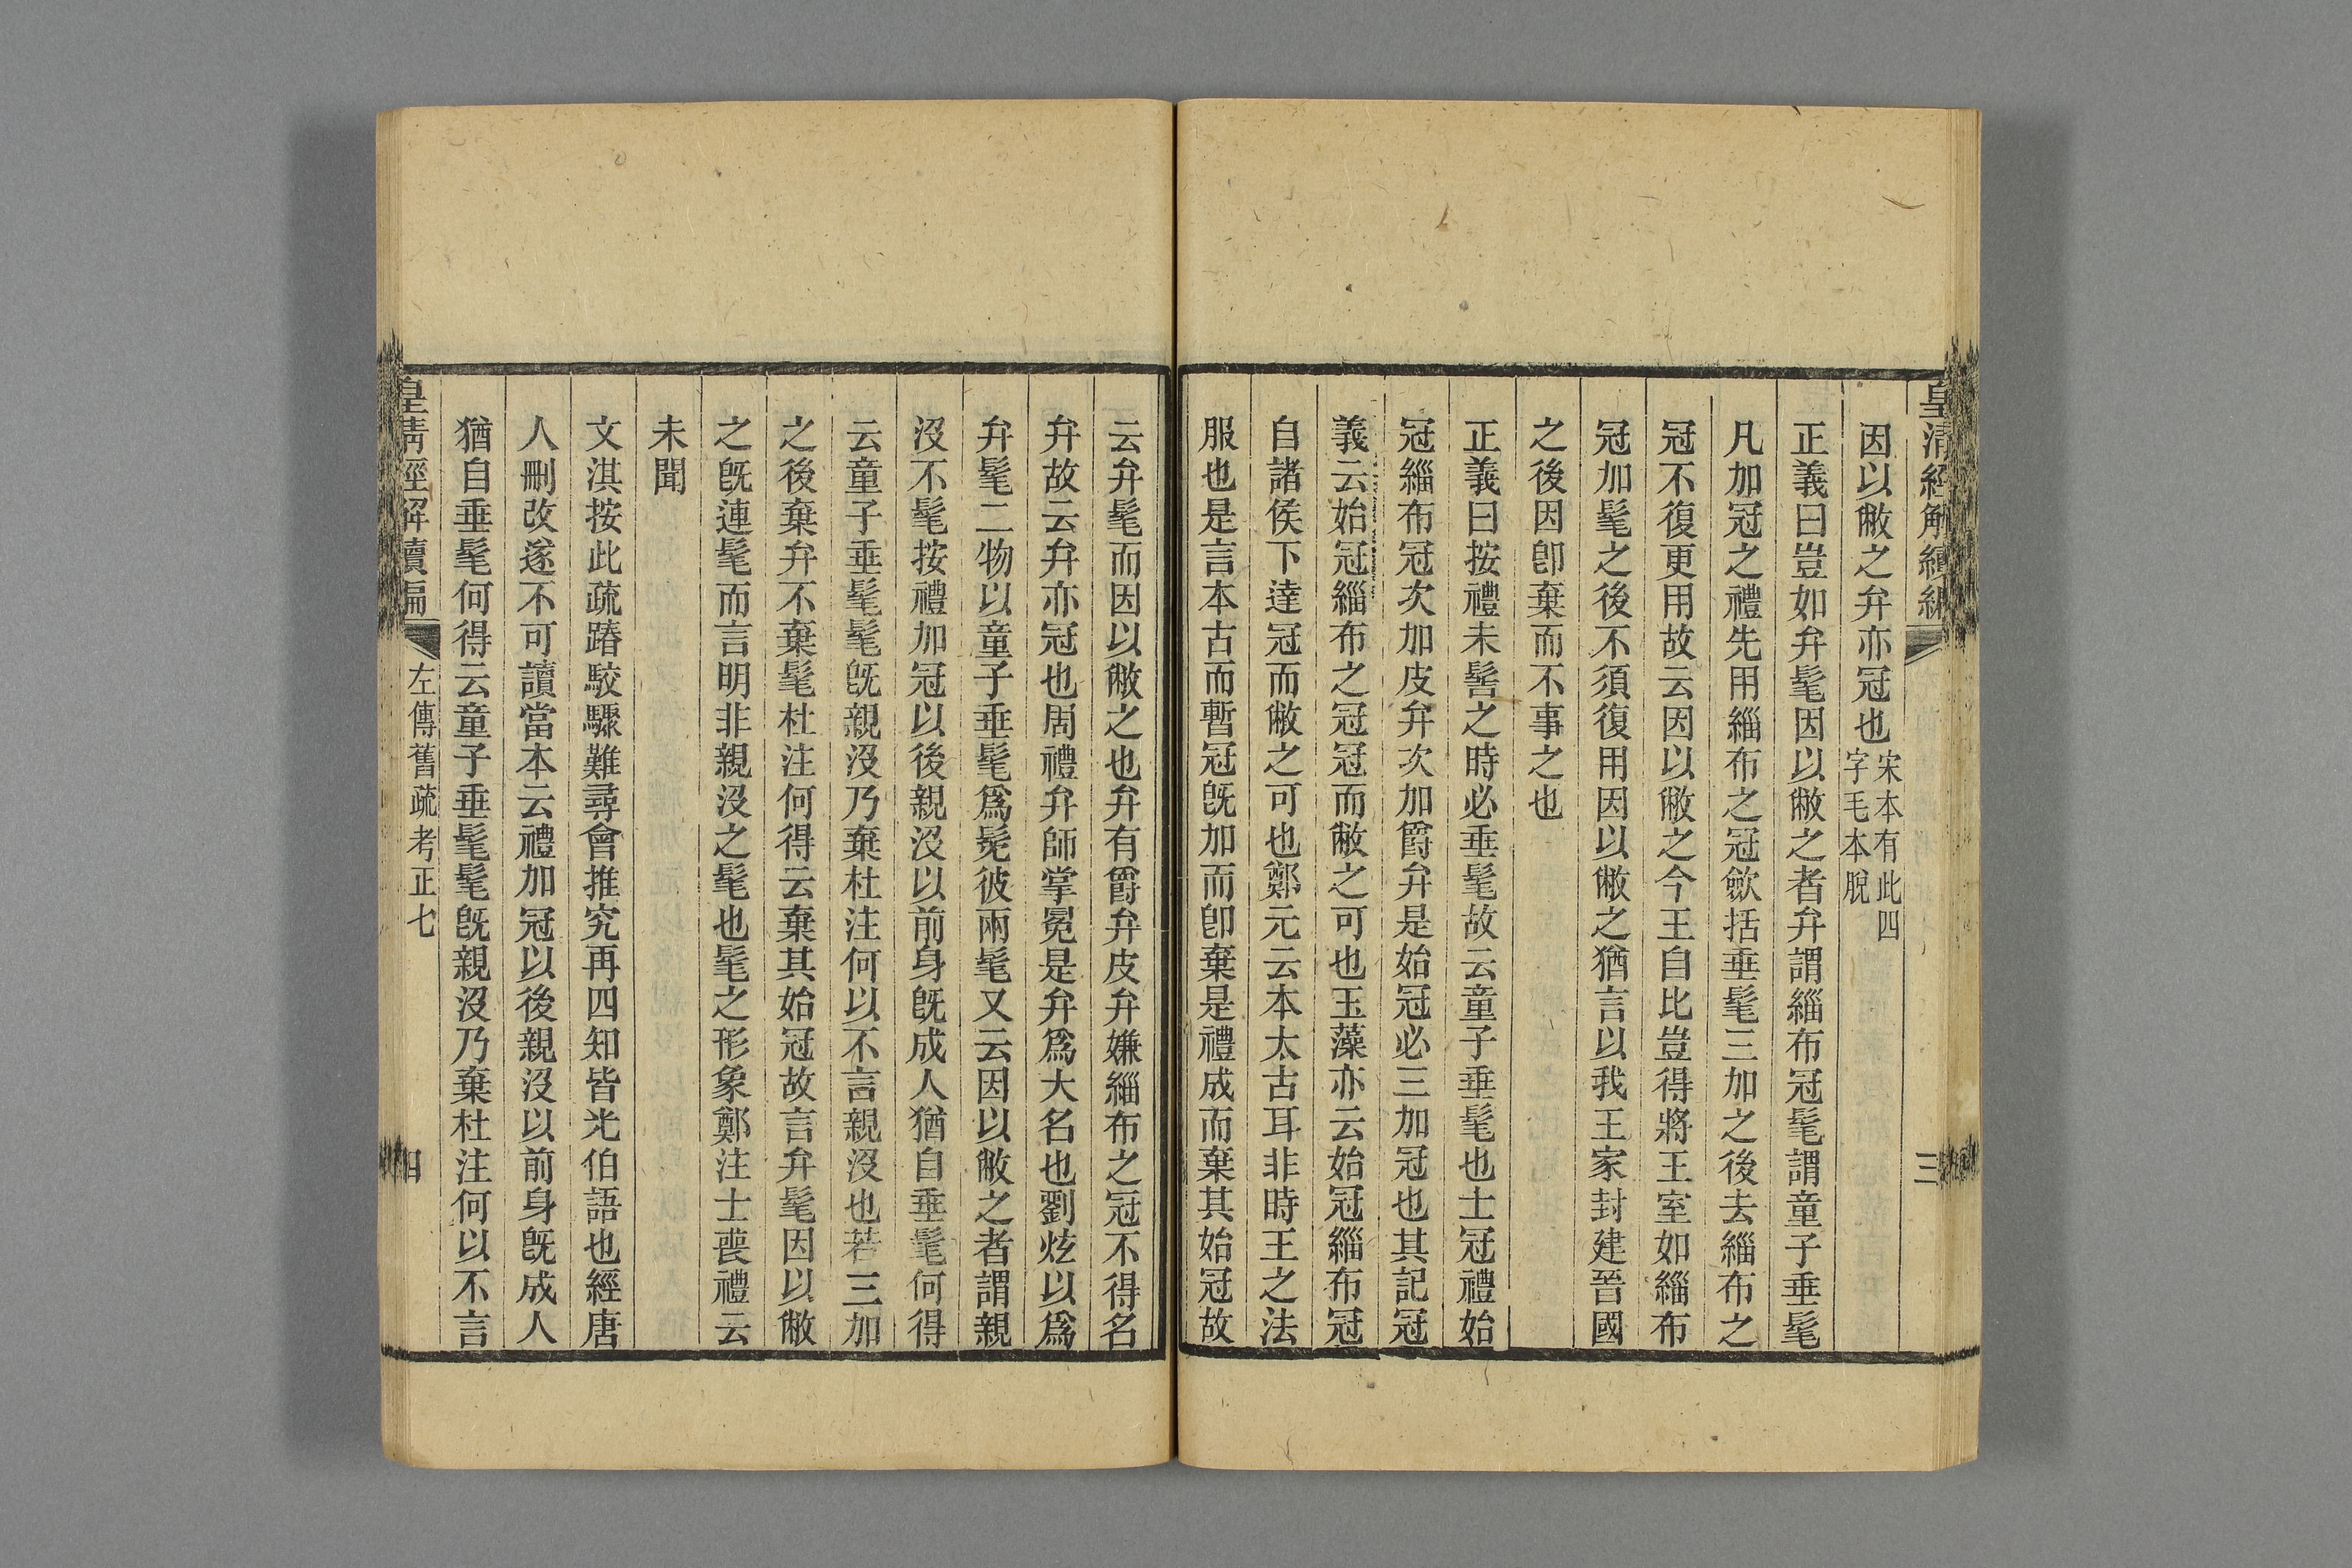 皇清經解續編
三
因以敝之弁亦冠也宋本有此四字毛本脫
正義曰豈如弁髦因以敝之者弁謂緇布冠髦謂童子垂髦
凡加冠之禮先用緇布之冠斂括垂髦三加之後去緇布之
冠不復更用故云因以敝之今王自比豈得將王室如緇布
冠加髦之後不須復用因以敝之猶言以我王家封建晉國
之後因卽棄而不事之也
正義曰按禮未髻之時必垂髦故云童子垂髦也士冠禮始
冠緇布冠次加皮弁次加爵弁是始冠必三加冠也其記冠
義云始冠緇布之冠冠而敝之可也玉藻亦云始冠緇布冠
自諸侯下達冠而敝之可也鄭元云本太古耳非時王之法
服也是言本古而暫冠旣加而卽棄是禮成而棄其始冠故
云弁髦而因以敝之也弁有爵弁皮弁嫌緇布之冠不得名
弁故云弁亦冠也周禮弁師掌冕是弁爲大名也劉炫以爲
弁髦二物以童子垂髦爲髡彼兩髦又云因以敝之者謂親
沒不髦按禮加冠以後親沒以前身旣成人猶自垂髦何得
云童子垂髦髦旣親沒乃棄杜注何以不言親沒也若三加
之後棄弁不棄髦杜注何得云棄其始冠故言弁髦因以敝
之旣連髦而言明非親沒之髦也髦之形象鄭注士喪禮云
未聞
文淇按此疏踳駁驟難尋會推究再四知皆光伯語也經唐
人刪改遂不可讀當本云禮加冠以後親沒以前身旣成人
猶自垂髦何得云童子垂髦髦旣親沒乃棄杜注何以不言
皇清經解續編
左傳舊疏考正七
四